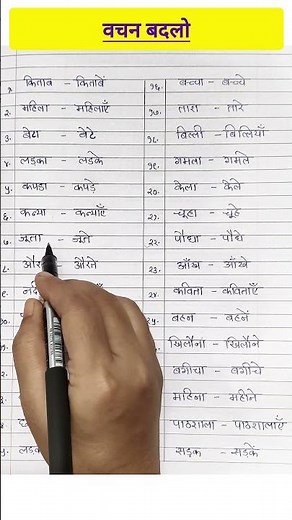 वचन बदलो
१. किताब – किताबें
२. महिला – महिलाएँ
३. बेटा – बेटे
४. लड़का – लडके
५. कपडा – कपड़े
६. कन्या – कन्याएँ
७. जूता – जूते
८. औरते
९.
१६. बच्चा – बच्चे
१७. तारा – तारे
१८. बिल्ली – बिल्लियाँ
१९. गमला – गमले
२०. केला – केले
२१. चूहा – चूहे
२२. पौधा – पौधे
२३. आँख – आँखे
२४. कविता – कविताएँ
बहन – बहनें
खिलौना – खिलौने
बगीचा – बगीचे
महिना – महीने
पाठशाला – पाठशालाएँ
सड़क – सड़कें